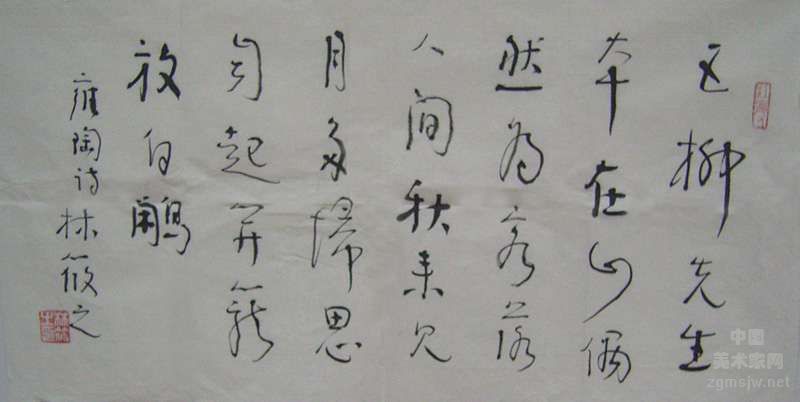 五柳先生
本在山偶
然為客落
人間秋来見
月多歸思
自起開籠
放白鷴
雍陶詩 林筱之
中国
美术家网
zgmsjw.net